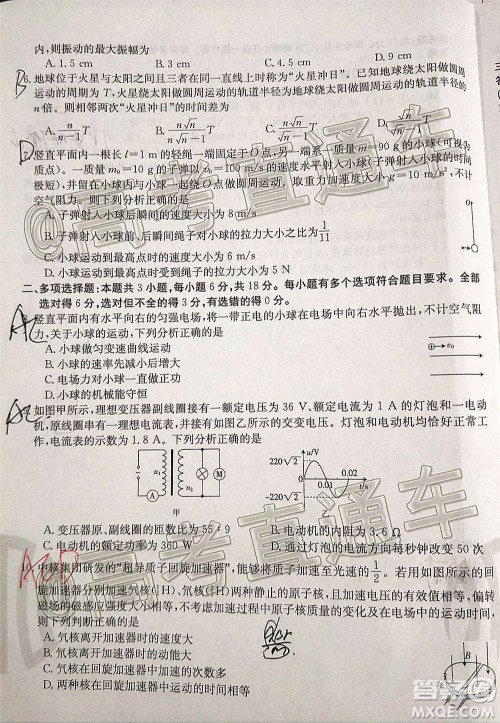 内,则振动的最大振幅为
A. 1.5 cm　B. 3 cm　C. 4.5 cm　D. 9 cm
B 6. 地球位于火星与太阳之间且三者在同一直线上时称为“火星冲日”。已知地球绕太阳做圆周
运动的周期为 T,火星绕太阳做圆周运动的轨道半径为地球绕太阳做圆周运动的轨道半径的
n倍。则相邻两次“火星冲日”的时间差为
A. n/(n−1) T　B. n√n/(n√n−1) T　C. √n/(√n−1) T
D 竖直平面内一根长 l=1 m 的轻绳一端固定于O点,另一端系一质量 m=90 g 的小球(可视为质
点)。一质量 m₀=10 g 的子弹以 v₀=100 m/s 的速度水平射入小球(子弹射入小球的时间
极短),并在竖直面内与小球一起绕O点做圆周运动。取重力加速度大小 g=10 m/s²,不计
空气阻力,则下列分析正确的是
A. 子弹射入小球后瞬间的速度大小为 8 m/s
B. 子弹射入小球前、后瞬间绳子对小球的拉力大小之比为 1/11
C. 小球运动到最高点时的速度大小为 6 m/s
D. 小球运动到最高点时受到绳子的拉力大小为 5 N
二、多项选择题:本题共 3 小题,每小题 6 分,共 18 分。每小题有多个选项符合题目要求。全部
选对得 6 分,选对但不全的得 3 分,有选错的得 0 分。
AC 竖直平面内有水平向右的匀强电场,将一带正电的小球从电场中向右水平抛出,不计空气阻
力,关于小球的运动,下列分析正确的是
A. 小球做匀变速曲线运动
B. 小球的速率先减小后增大
C. 电场力对小球一直做正功
D. 小球的机械能守恒
v₀
如图甲所示,理想变压器副线圈接有一额定电压为 36 V、额定电流为 1 A 的灯泡和一电动
机,原线圈串有一理想电流表,并接有如图乙所示的交变电压。灯泡和电动机均恰好正常工
作,电流表的示数为 1.8 A。下列分析正确的是
A n₁ n₂ M
甲
u/V 220√2 0 −220√2 0.01 0.02 t/s
A. 变压器原、副线圈的匝数比为 55∶9　B. 电动机的内阻为 3.6 Ω
C. 电动机的额定功率为 360 W　D. 原线圈两端的电压方向每秒钟改变
中核集团研发的“超导质子回旋加速器”,能够将质子加速至光速的 1/2。若用如图所示的回
旋加速器分别加速氕核(¹H)、氘核(²H)两种静止的原子核,不考虑加速过程中
,则下列判断正确的是
A. 氘核离开加速器时的速度大
B. 氕核离开加速器时的动能大
C. 氘核在回旋加速器中加速的次数多
D. 两种核在回旋加速器中运动的时间相等
B
@高考直通车
@高考直通车
答案圈
MXQE.COM